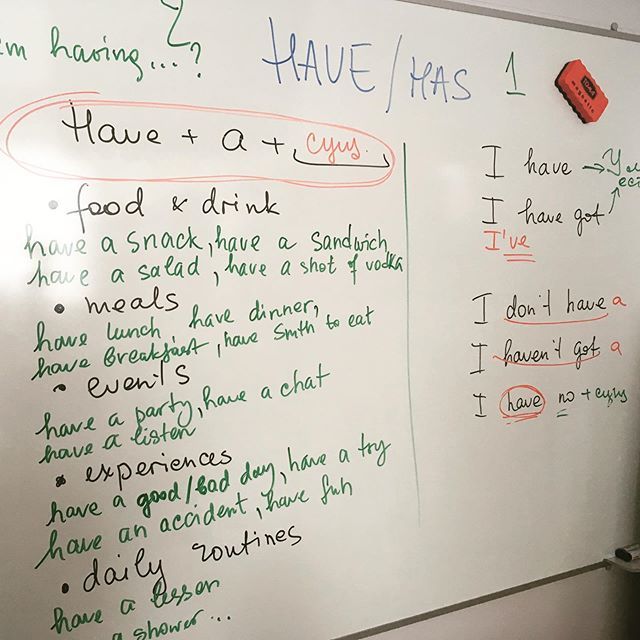 having...?
HAVE/HAS 1
Have + a + сущ.
• food & drink
have a snack, have a sandwich
have a salad, have a shot of vodka
• meals
have lunch, have dinner,
have breakfast, have smth to eat
• events
have a party, have a chat
have a listen
• experiences
have a good/bad day, have a try
have an accident, have fun
• daily routines
have a lesson
a shower...
I have →
I have got
I've
I don't have a
I haven't got a
I have no + сущ